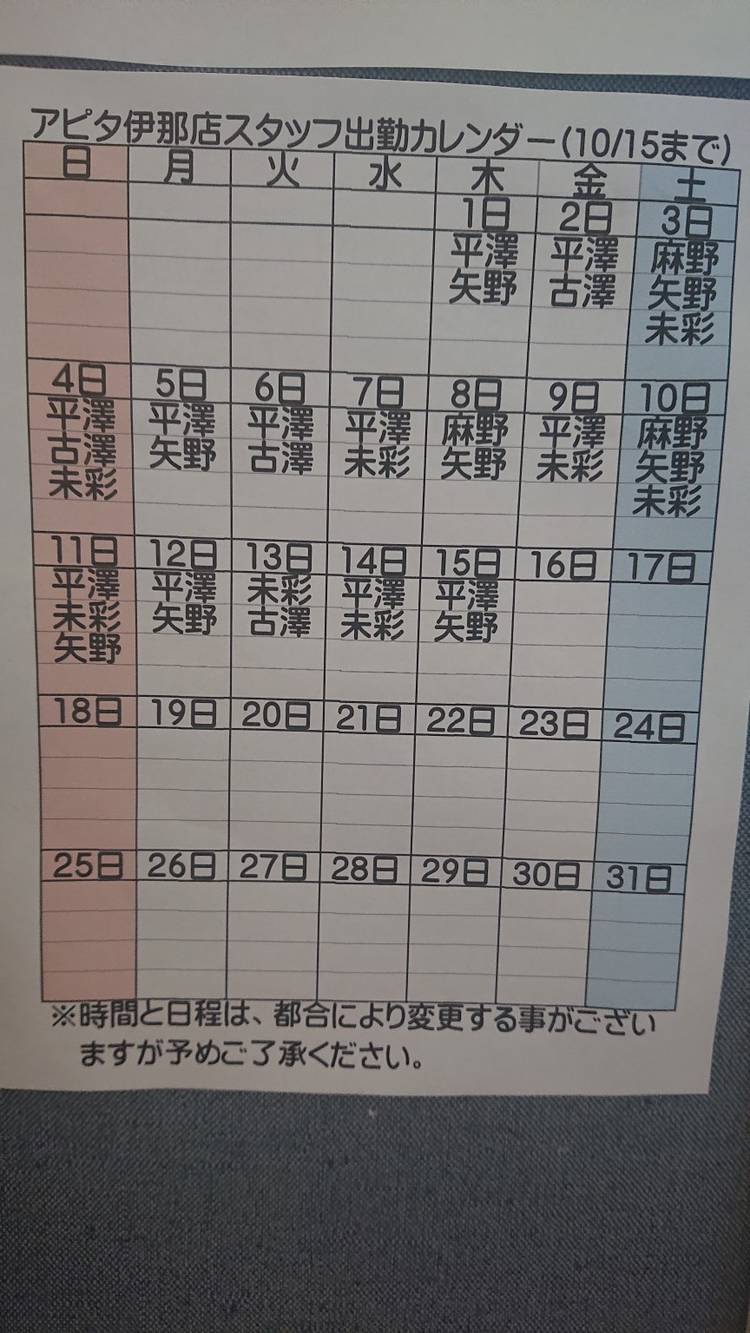 アピタ伊那店スタッフ出勤カレンダー(10/15まで)
日 月 火 水 木 金 土
1日 2日 3日
平澤 平澤 麻野
矢野 古澤 矢野
未彩
4日 5日 6日 7日 8日 9日 10日
平澤 平澤 平澤 平澤 麻野 平澤 麻野
古澤 矢野 古澤 未彩 矢野 未彩 矢野
未彩 未彩
11日 12日 13日 14日 15日 16日 17日
平澤 平澤 未彩 平澤 平澤
未彩 矢野 古澤 未彩 矢野
矢野
18日 19日 20日 21日 22日 23日 24日
25日 26日 27日 28日 29日 30日 31日
※時間と日程は、都合により変更する事がござい
ますが予めご了承ください。